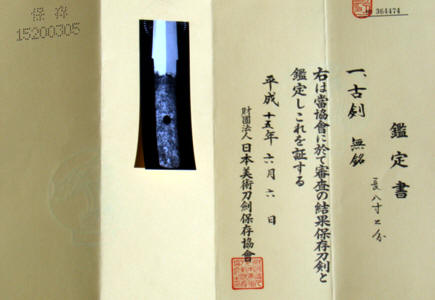 鑑定書
一、古剣 無銘
長八寸二分
右は當協會に於て審査の結果保存刀剣と
鑑定しこれを証する
平成十五年六月六日
財團法人日本美術刀剣保存協會
保存
15200305
364474